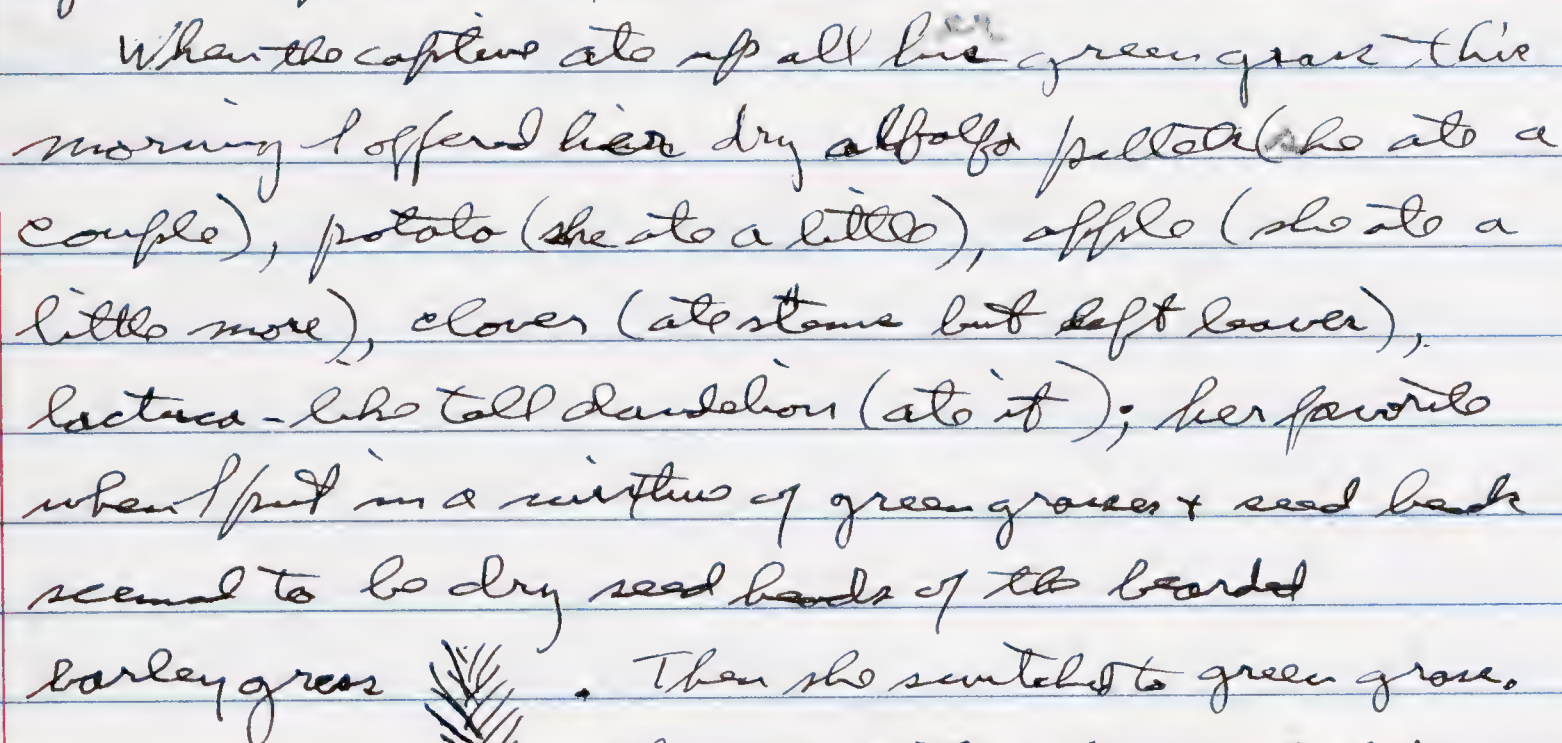 When the captive ate up all his green grass this
morning I offered her dry alfalfa pellets (she ate a
couple), potato (she ate a little), apple (she ate a
little more), clover (ate stems but left leaves),
lactuca-like tall dandelion (ate it); her favorite
when I put in a mixture of green grasses + seed heads
seemed to be dry seed heads of the bearded
barley grass . Then she switched to green grass.